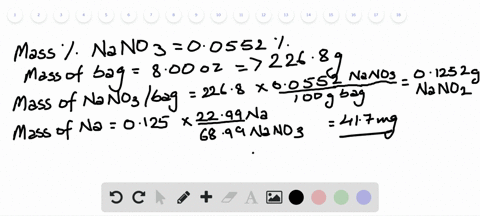 Mass %. NaNO3 = 0.0552 %.
Mass of bag = 8.00 oz => 226.8g
Mass of NaNO3/bag = 226.8 × 0.0552 NaNO3 / 100g bag = 0.1252g NaNO2
Mass of Na = 0.125 × 22.99 Na / 68.99 NaNO3 = 41.7 mg